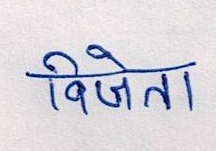 विजेता